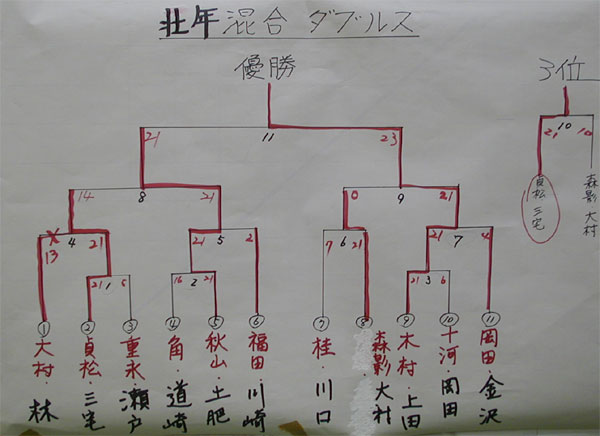 壮年混合 ダブルス
優勝
3位
21 11 23
10
21 10
14 8 21
0 9 21
貞松 三宅
森影 大村
13 4 21
21 5 2
7 6 21
21 7 4
21 1 6
16 2 21
21 3 6
① ② ③ ④ ⑤ ⑥ ⑦ ⑧ ⑨ ⑩ ⑪
大村・林
貞松・三宅
重永・瀬戸
角・道崎
秋山・土肥
福田・川崎
桂・川口
森影 大村
木村・上田
十河・岡田
岡田・金沢